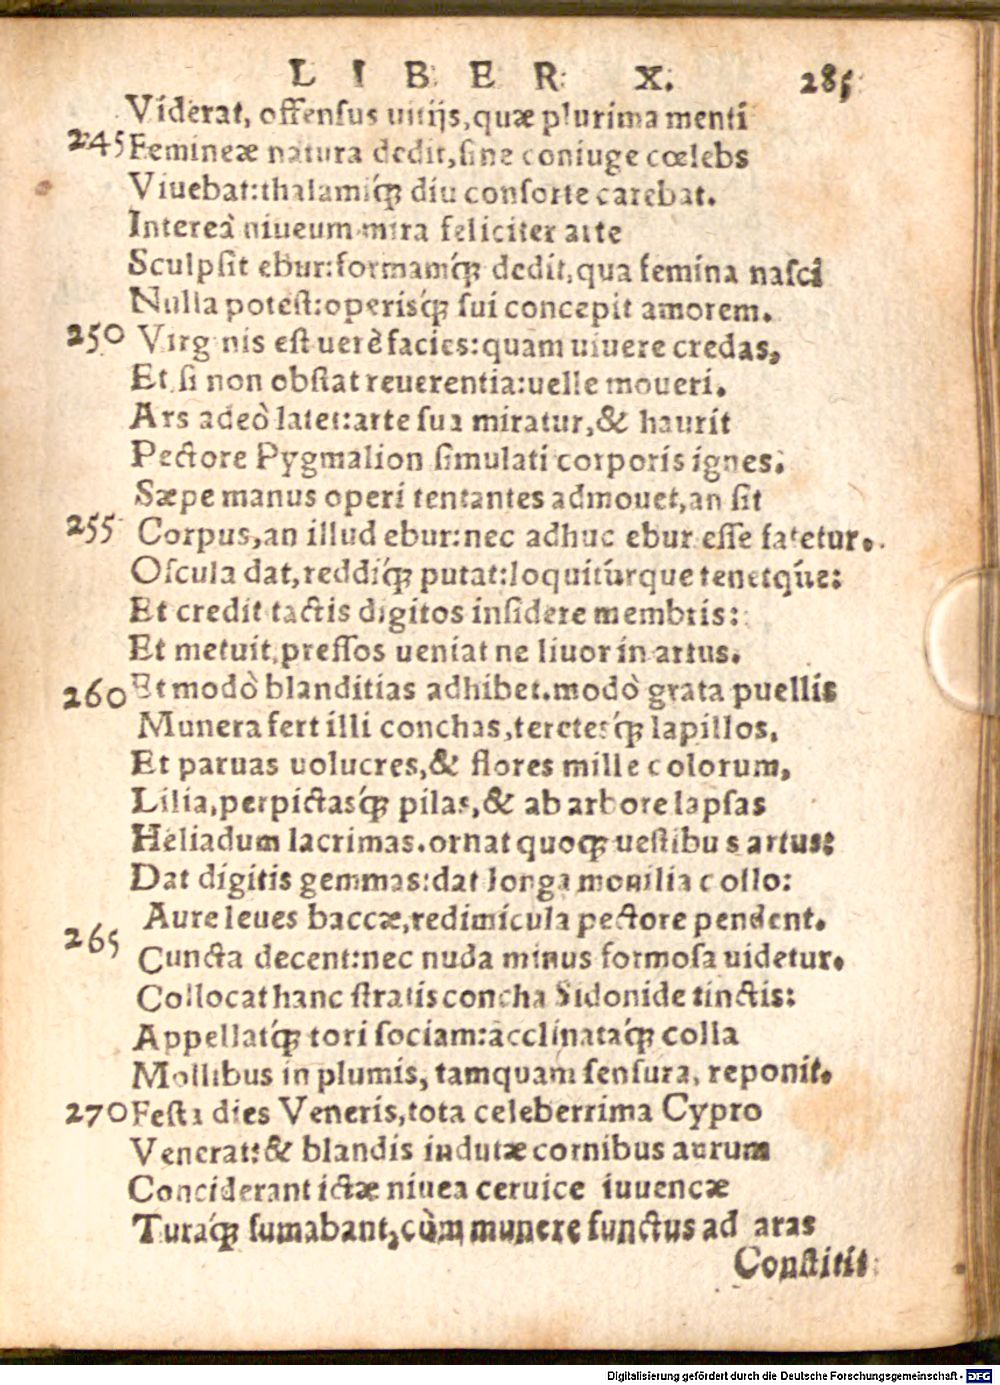 LIBER X. 285
Viderat, offensus uitijs, quæ plurima menti
245 Femineæ natura dedit, sine coniuge cœlebs
Viuebat: thalamiq́; diu consorte carebat.
Intereà niueum mira feliciter arte
Sculpsit ebur: formamq́; dedit, qua femina nasci
Nulla potest: operisq́; sui concepit amorem.
250 Virginis est uerè facies: quam uiuere credas,
Et si non obstat reuerentia: uelle moueri.
Ars adeò latet: arte sua miratur, & haurit
Pectore Pygmalion simulati corporis ignes.
Sæpe manus operi tentantes admouet, an sit
255 Corpus, an illud ebur: nec adhuc ebur esse fatetur.
Oscula dat, reddiq́; putat: loquitúrque tenetq́ue:
Et credit tactis digitos insidere membris:
Et metuit, pressos ueniat ne liuor in artus.
260 Et modò blanditias adhibet. modò grata puellis
Munera fert illi conchas, teretesq́; lapillos,
Et paruas uolucres, & flores mille colorum,
Lilia, perpictasq́; pilas, & ab arbore lapsas
Heliadum lacrimas. ornat quoq; uestibus artus:
Dat digitis gemmas: dat longa monilia collo:
Aure leues baccæ, redimicula pectore pendent.
265 Cuncta decent: nec nuda minus formosa uidetur.
Collocat hanc stratis concha Sidonide tinctis:
Appellatq́; tori sociam: acclinataq́; colla
Mollibus in plumis, tamquam sensura, reponit.
270 Festa dies Veneris, tota celeberrima Cypro
Venerat: & blandis indutæ cornibus aurum
Conciderant ictæ niuea ceruice iuuencæ
Turaq́; fumabant, cùm munere functus ad aras
Constitit
Digitalisierung gefördert durch die Deutsche Forschungsgemeinschaft - DFG